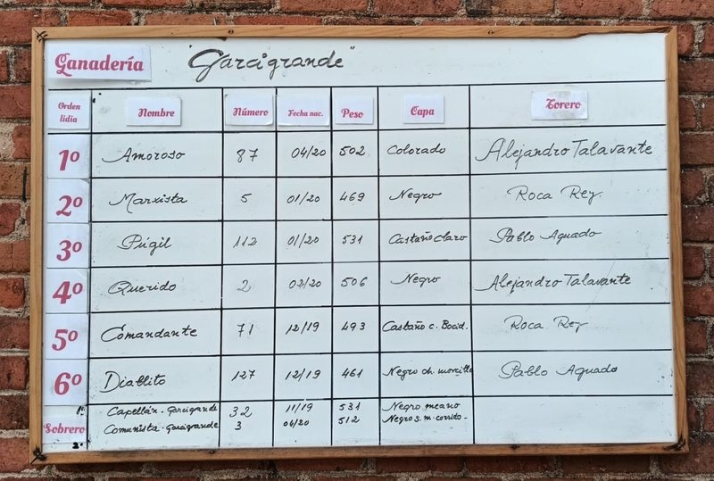 Ganadería "Garcigrande"
Orden lidia Nombre Número Fecha nac. Peso Capa Torero
1º Amoroso 87 04/20 502 Colorado Alejandro Talavante
2º Marxista 5 01/20 469 Negro Roca Rey
3º Púgil 112 01/20 531 Castaño claro Pablo Aguado
4º Querido 2 02/20 506 Negro Alejandro Talavante
5º Comandante 71 12/19 493 Castaño c. Bocid. Roca Rey
6º Diablito 127 12/19 461 Negro ch. morcillo Pablo Aguado
Sobrero 1º Capellán - Garcigrande 32 11/19 531 Negro meano
2º Comunista - Garcigrande 3 04/20 512 Negro s. m. corrido -